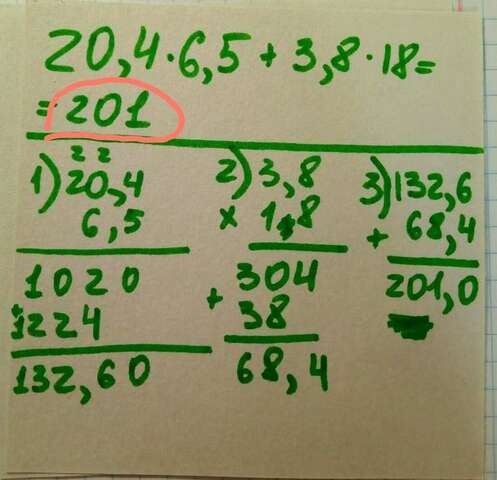 20,4·6,5 + 3,8·18=
= 201
1) 20,4
2 2
6,5
1020
+
1224
132,60
2) 3,8
x 18
304
+ 38
68,4
3) 132,6
+ 68,4
201,0